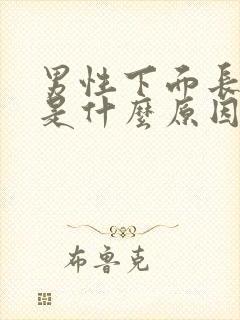 男性下面長
是什麼原因
布魯克